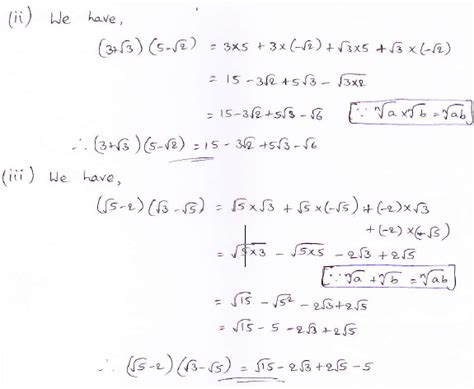 (ii) We have,
(3+√3) (5-√2) = 3×5 + 3×(-√2) + √3×5 + √3 ×(-√2)
= 15 - 3√2 + 5√3 - √3×2
= 15 - 3√2 + 5√3 - √6 [∵ ⁿ√a × ⁿ√b = ⁿ√ab]
∴ (3+√3) (5-√2) = 15 - 3√2 + 5√3 - √6
(iii) We have,
(√5-2) (√3 -√5) = √5×√3 + √5×(-√5) + (-2)×√3
+ (-2) ×(-√5)
= √5×3 - √5×5 - 2√3 + 2√5
[∵ ⁿ√a + ⁿ√b = ⁿ√ab]
= √15 - √5² - 2√3 + 2√5
= √15 - 5 - 2√3 + 2√5
∴ (√5-2) (√3-√5) = √15 - 2√3 + 2√5 - 5